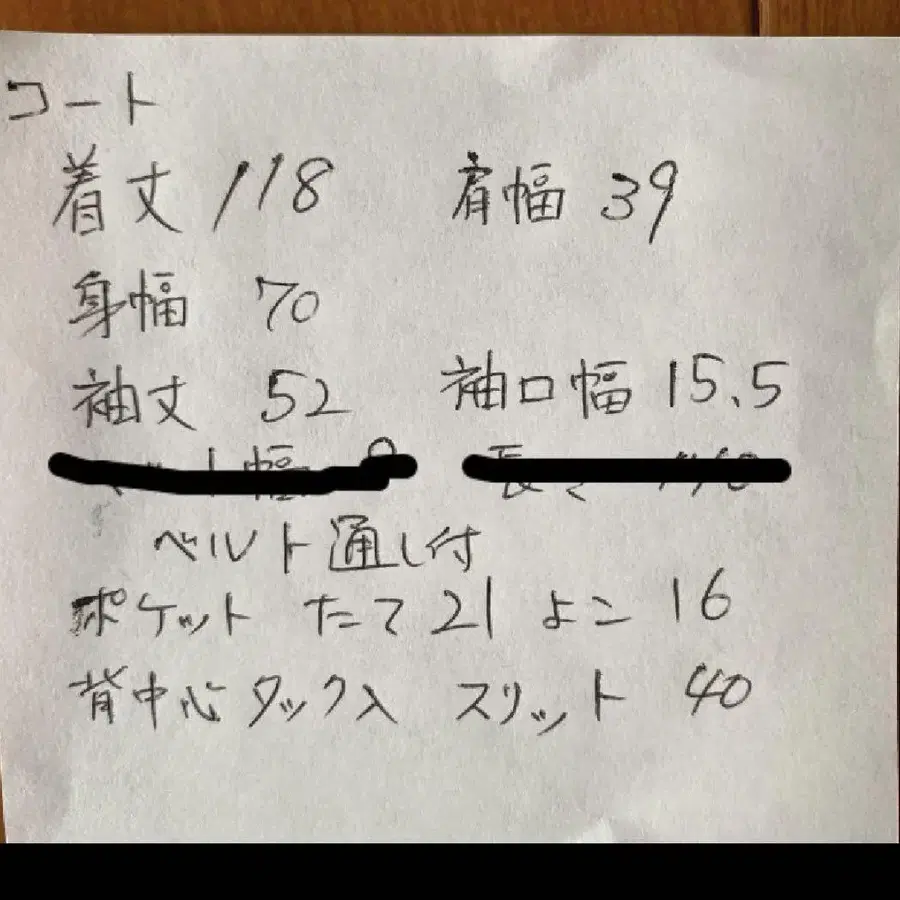 コート
着丈 118 肩幅 39
身幅 70
袖丈 52 袖口幅 15.5
ベルト通し付
ポケット たて 21 よこ 16
背中心 タック入 スリット 40